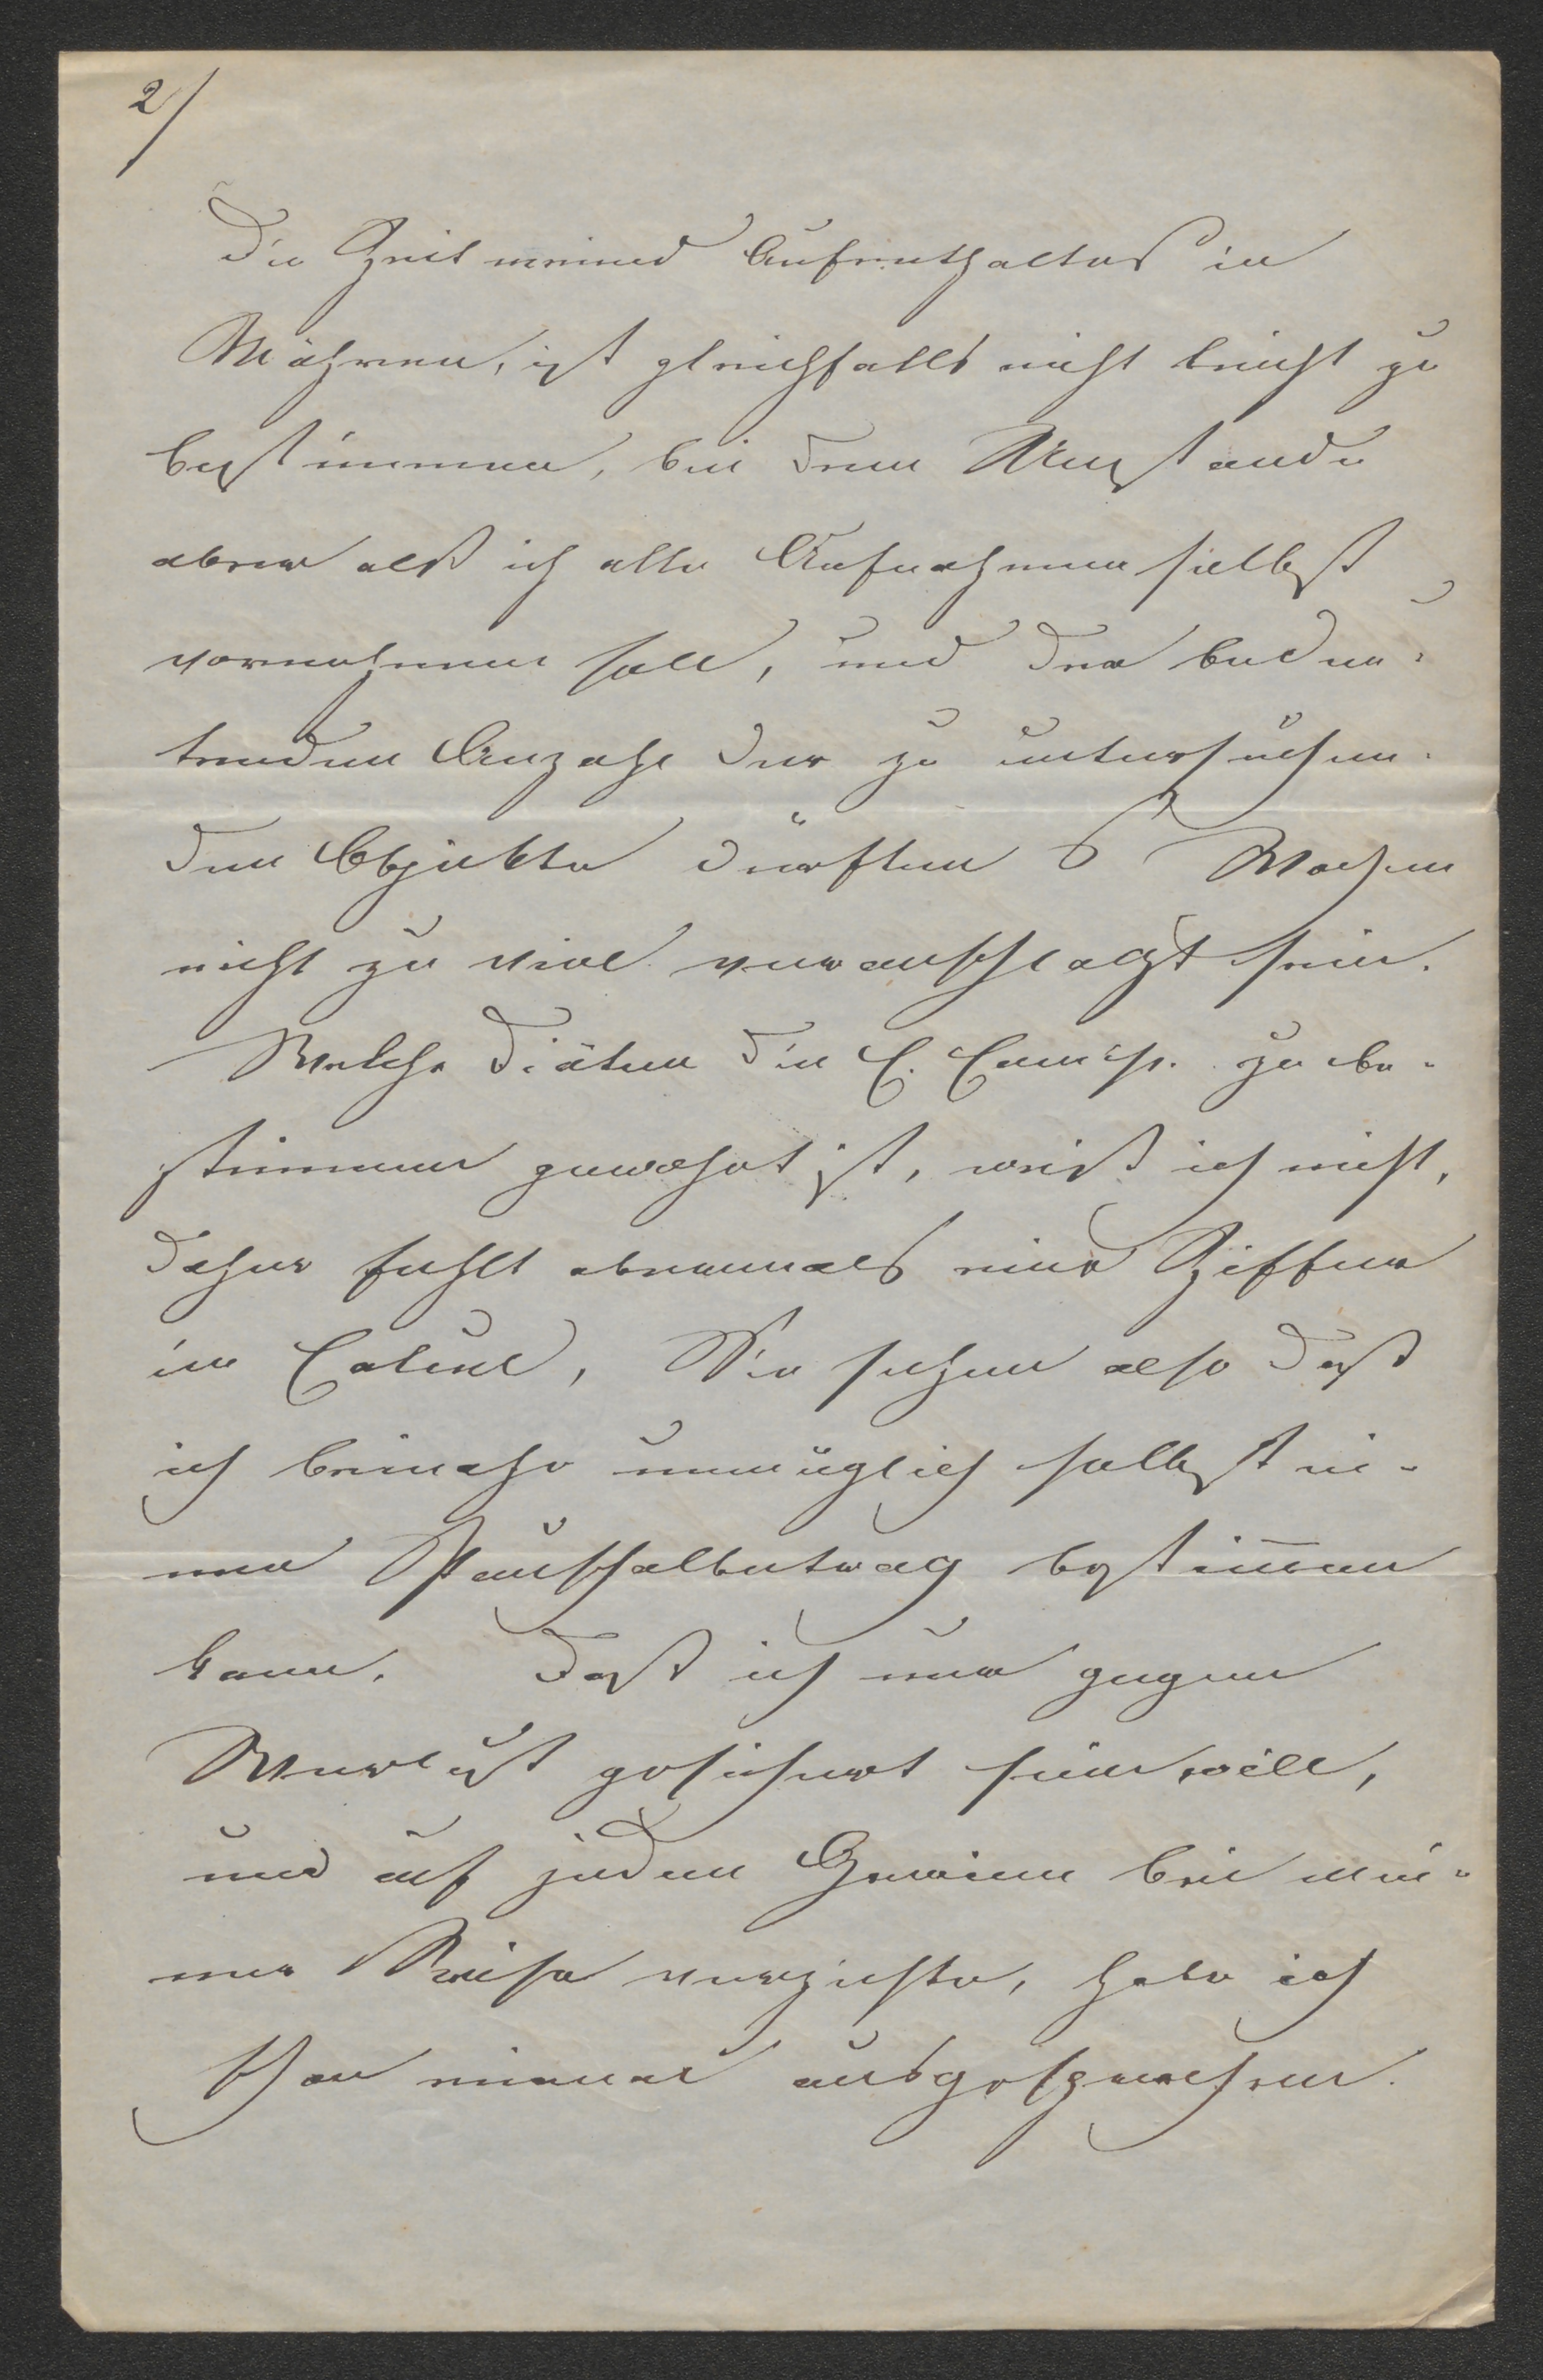 2/
Die Zeit meines Aufenthaltes in
Mähren, ist gleichfalls nicht leicht zu
bestimmen, bei dem Umstande
aber als ich alle Aufnahmen selbst
vornehmen soll, und der bedeu-
tenden Anzahl der zu untersuchen-
den Objekte dürften 6 Wochen
nicht zu viel veranschlagt sein.
Welche Diäten die C. Comiss. zu be-
stimmen gewohnt ist, weiß ich nicht,
daher fehlt abermals eine Ziffer
im Calcul, Sie sehen also daß
ich beinahe unmöglich selbst ei-
nen Pauschalbetrag bestim̅en
kann. Daß ich nur gegen
Verlust gesichert sein will,
und auf jeden Gewinn bei mei-
ner Reise verzichte, habe ich
schon einmal ausgesprochen.